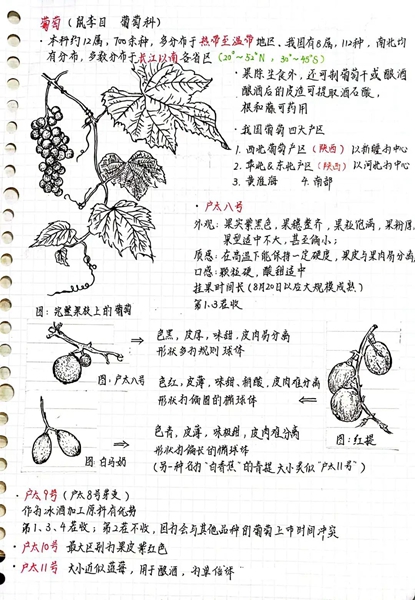 葡萄（鼠李目 葡萄科）
· 本科约12属，700余种，多分布于热带至温带地区。我国有8属，112种，南北均
有分布，多数分布于长江以南各省区（20°~52°N，30°~45°S）
· 果除生食外，还可制葡萄干或酿酒
酿酒后的皮渣可提取酒石酸，
根和藤可药用
· 我国葡萄四大产区
1. 西北葡萄产区（陕西）以新疆为中心
2. 华北&东北产区（陕西）以河北为中心
3. 黄淮海 4. 南部
· 户太八号
外观：果实紫黑色，果穗整齐，果粒饱满，果粉厚
果型适中不大，甚至偏小；
质感：在高温下能保持一定硬度，果皮与果肉易分离
口感：颗粒硬，酸甜适中
挂果时间长（8月20日以后大规模成熟）
第1.3在收
图：完整果枝上的葡萄
色黑，皮厚，味甜，皮肉易分离
形状多为规则球体
图：户太八号
色红，皮薄，味甜，稍酸，皮肉难分离
形状为偏圆的椭球体
图：红提
色青，皮薄，味极甜，皮肉难分离
形状为偏长的椭球体
（另一种名为“白香蕉”的青提大小类似“户太11号”）
图：白马奶
· 户太9号（户太8号芽变）
作为冰酒加工原料有优势
第1、3、4在收；第2在不收，因为会与其他品种的葡萄上市时间冲突
· 户太10号 最大区别为果皮紫红色
· 户太11号 大小近似蓝莓，用于酿酒，为单倍体